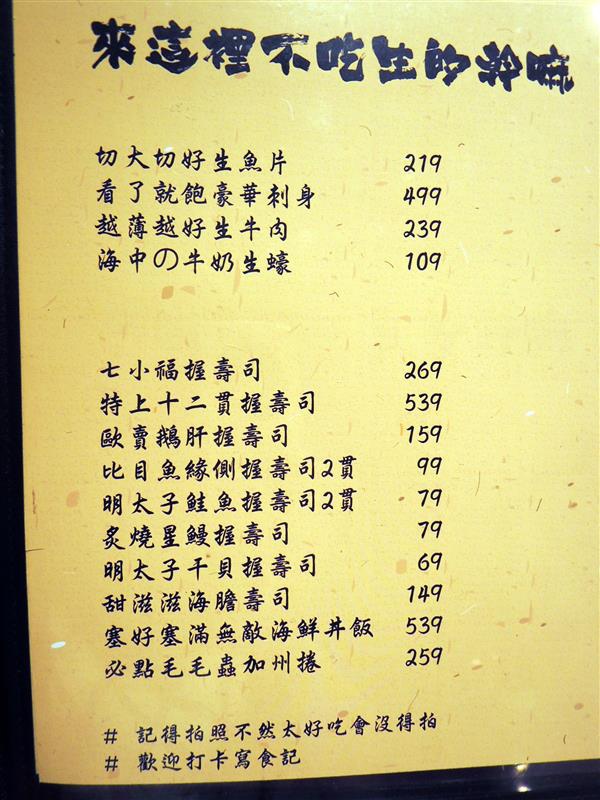 來這裡不吃生的幹嘛
切大切好生魚片 219
看了就飽豪華刺身 499
越薄越好生牛肉 239
海中の牛奶生蠔 109
七小福握壽司 269
特上十二貫握壽司 539
歐賣鵝肝握壽司 159
比目魚緣側握壽司2貫 99
明太子鮭魚握壽司2貫 79
炙燒星鰻握壽司 79
明太子干貝握壽司 69
甜滋滋海膽壽司 149
塞好塞滿無敵海鮮丼飯 539
必點毛毛蟲加州捲 259
# 記得拍照不然太好吃會沒得拍
# 歡迎打卡寫食記